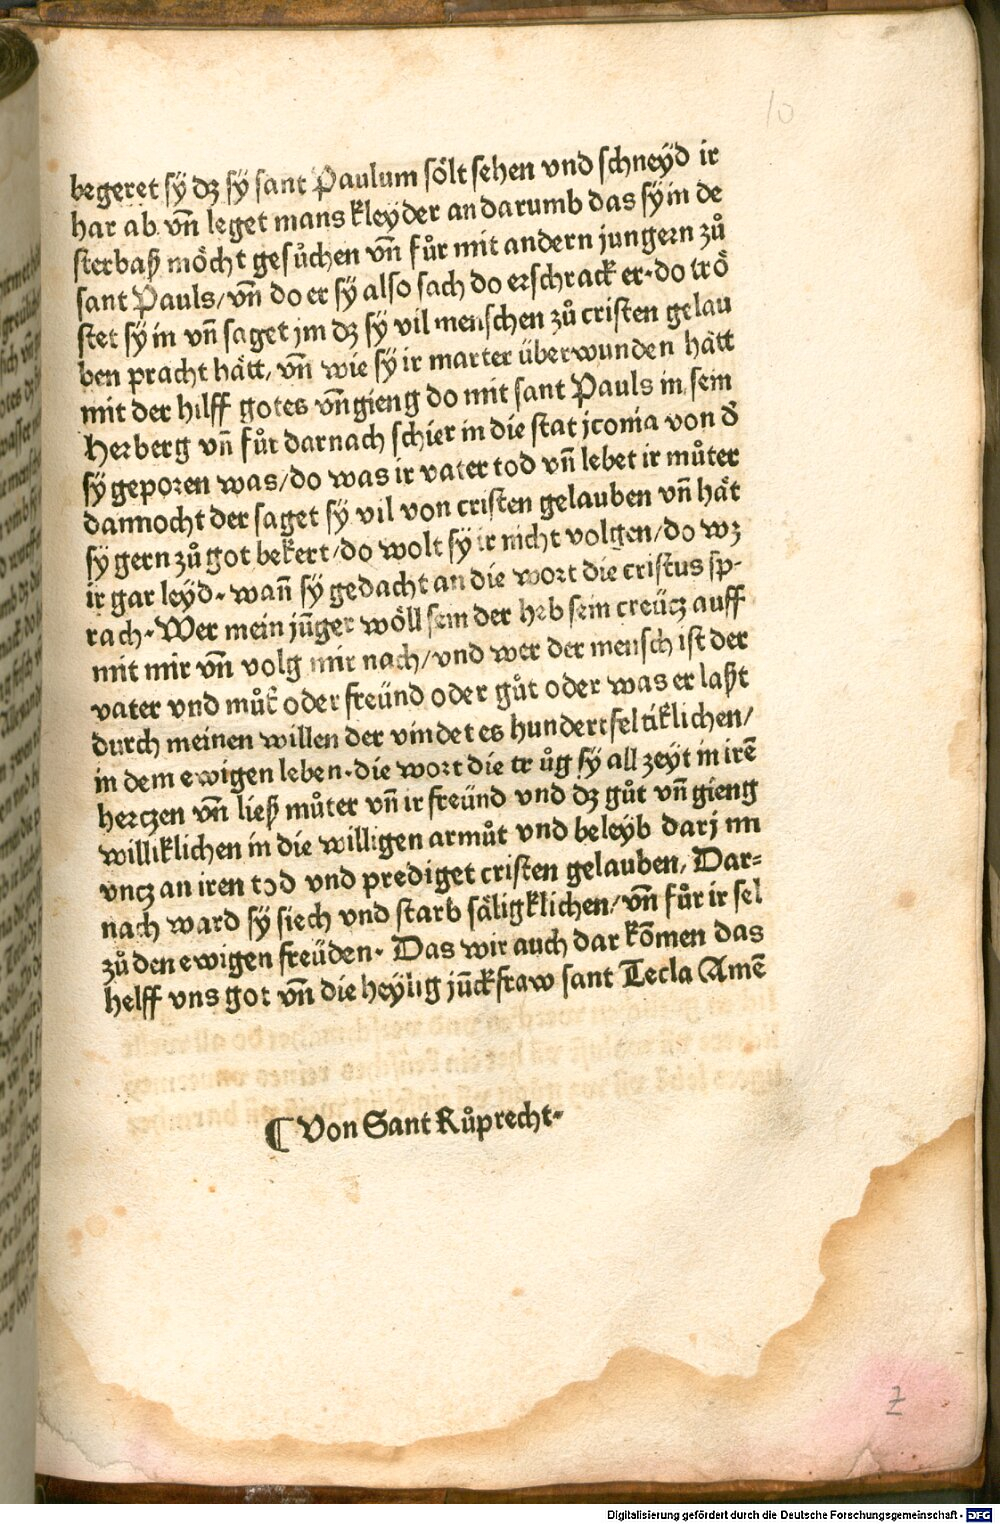 10
begeret sÿ dz sÿ sant Paulum sölt sehen vnd schneÿd ir
har ab vn̄ leget mans kleÿder an darumb das sÿ in de
sterbaß möcht gesůchen vn̄ fůr mit andern jungern zů
sant Pauls/ vn̄ do er sÿ also sach do erschrack er· do trö
stet sÿ in vn̄ saget jm dz sÿ vil menschen zů cristen gelau
ben pracht hätt/ vn̄ wie sÿ ir marter überwunden hätt
mit der hilff gotes vn̄ gieng do mit sant Pauls in sein
Herberg vn̄ fůr darnach schier in die stat jconia von d̄
sÿ geporen was/ do was ir vater tod vn̄ lebet ir můter
dannocht der saget sÿ vil von cristen gelauben vn̄ hät
sÿ gern zů got bekert/ do wolt sÿ ir nicht volgen/ do wz
ir gar leÿd· wan̄ sÿ gedacht an die wort die cristus sp-
rach· Wer mein jūger wöll sein der heb sein creücz auff
mit mir vn̄ volg mir nach/ vnd wer der mensch ist der
vater vnd můt̄ oder freünd oder gůt oder was er laßt
durch meinen willen der vindet es hundertfeltiklichen/
in dem ewigen leben· die wort die trůg sÿ all zeÿt in irē
herczen vn̄ ließ můter vn̄ ir freünd vnd dz gůt vn̄ gieng
williklichen in die willigen armůt vnd beleÿb darjnn
vncz an iren tod vnd prediget cristen gelauben/ Dar=
nach ward sÿ siech vnd starb säligklichen/ vn̄ fůr ir sel
zů den ewigen freüden· Das wir auch dar kōmen das
helff vns got vn̄ die heÿlig jūckfraw sant Tecla Amē
¶ Von Sant Růprecht·
z
Digitalisierung gefördert durch die Deutsche Forschungsgemeinschaft - DFG